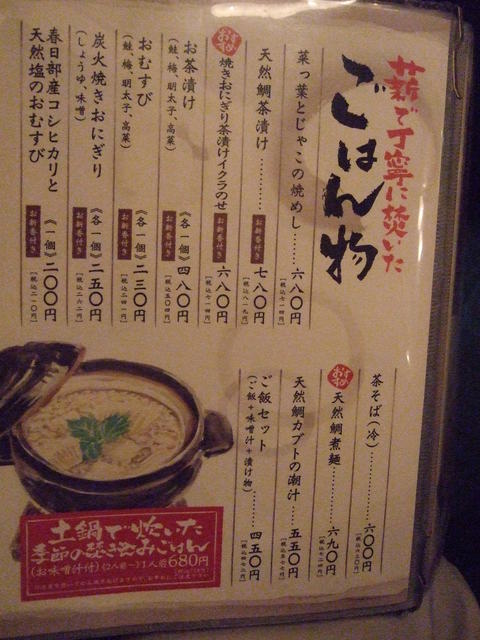 薪で丁寧に焚いた
ごはん物
菜っ葉とじゃこの焼めし……六八〇円
[税込七一四円]
天然鯛茶漬け……お新香付き 七八〇円
[税込八一九円]
おすすめ
焼きおにぎり茶漬けイクラのせ お新香付き 六八〇円
[税込七一四円]
お茶漬け お新香付き 《各一個》四八〇円
(鮭、梅、明太子、高菜)
[税込五〇四円]
おむすび お新香付き 《各一個》二三〇円
(鮭、梅、明太子、高菜)
[税込二四一円]
炭火焼きおにぎり お新香付き 《各一個》二五〇円
(しょうゆ、味噌)
[税込二六二円]
春日部産コシヒカリと
天然塩のおむすび お新香付き 《一個》二〇〇円
[税込二一〇円]
茶そば(冷)……六〇〇円
[税込六三〇円]
おすすめ
天然鯛煮麺……六九〇円
[税込七二四円]
天然鯛カブトの潮汁……五五〇円
[税込五七七円]
ご飯セット……四五〇円
(ご飯+味噌汁+漬け物)
[税込四七二円]
土鍋で炊いた
季節の炊き込みごはん
(お味噌汁付)《2人前〜》1人前680円